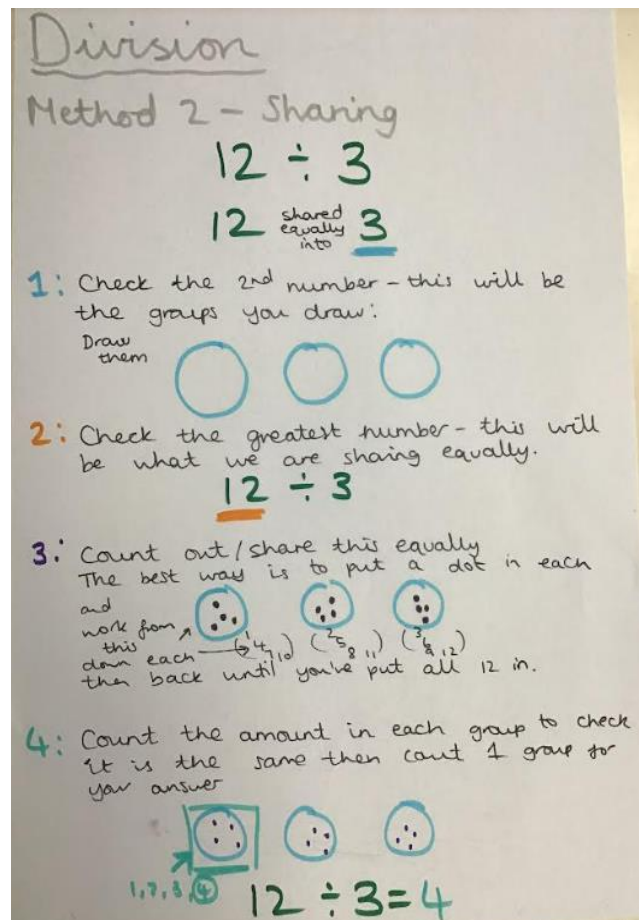 Division
Method 2 - Sharing
12 ÷ 3
12 shared equally into 3
1: Check the 2nd number - this will be
the groups you draw:
Draw
them
2: Check the greatest number - this will
be what we are sharing equally.
12 ÷ 3
3: Count out / share this equally
The best way is to put a dot in each
and
work from
this
down each (1 4 7 10) (2 5 8 11) (3 6 9 12)
then back until you've put all 12 in.
4: Count the amount in each group to check
it is the same then count 1 group for
your answer
1, 2, 3, 4
12 ÷ 3 = 4